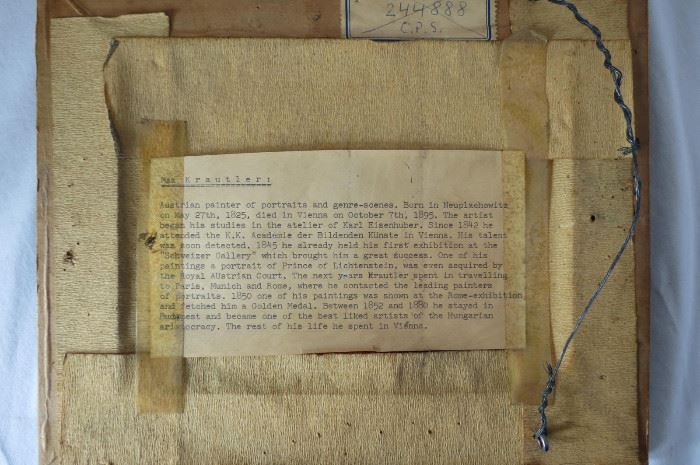 244888
C.P.S.
Max Krautler:
Austrian painter of portraits and genre-scenes. Born in Neuplachowitz
on May 27th, 1825, died in Vienna on October 7th, 1895. The artist
began his studies in the atelier of Karl Eisenhuber. Since 1842 he
attended the K.K. Academie der Bildenden Künste in Vienna. His talent
was soon detected. 1845 he already held his first exhibition at the
"Schweizer Gallery" which brought him a great success. One of his
paintings a portrait of Prince of Lichtenstein, was even acquired by
the Royal AUstrian Court. The next years Krautler spent in travelling
to Paris, Munich and Rome, where he contacted the leading painters
of portraits. 1850 one of his paintings was shown at the Rome-exhibition
and fetched him a Golden Medal. Between 1852 and 1880 he stayed in
Budapest and became one of the best liked artists of the Hungarian
aristocracy. The rest of his life he spent in Vienna.